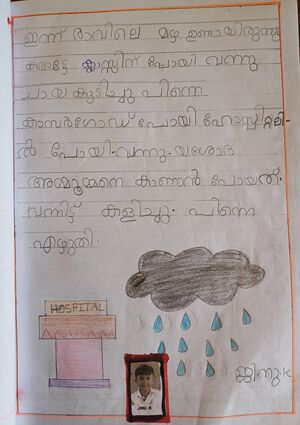 ഇന്ന് രാവിലെ മഴ ഉണ്ടായിരുന്നു
കരാട്ടേ ക്ലാസ്സിന് പോയി വന്നു
ചായ കുടിച്ചു പിന്നെ
കാസർഗോഡ് പോയി ഹോസ്പിറ്റലി-
ൽ പോയി. വന്നു. യശോദ
അമ്മൂമ്മനെ കാണാൻ പോയത്.
വന്നിട്ട് കളിച്ചു. പിന്നെ
എഴുതി.
HOSPITAL
ജിനു.K
JINU.K